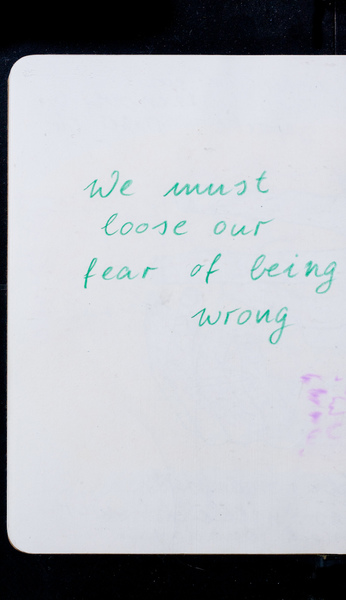 We must
loose our
fear of being
wrong